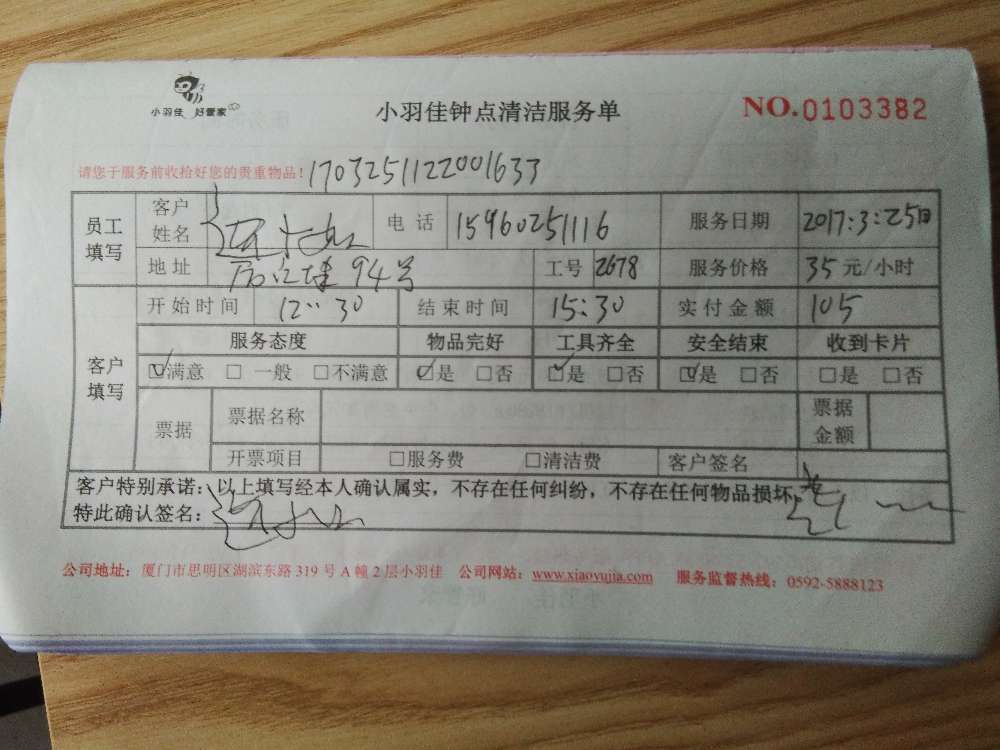 小羽佳 好管家
小羽佳钟点清洁服务单
NO.0103382
请您于服务前收拾好您的贵重物品! 1703251122001633
员工填写 客户姓名 电话 15960251116 服务日期 2017:3:25日
地址 94号 工号 2678 服务价格 35 元/小时
客户填写 开始时间 12:30 结束时间 15:30 实付金额 105
服务态度 物品完好 工具齐全 安全结束 收到卡片
☑满意 □一般 □不满意 ☑是 □否 ☑是 □否 ☑是 □否 □是 □否
票据 票据名称 票据金额
开票项目 □服务费 □清洁费 客户签名
客户特别承诺：以上填写经本人确认属实，不存在任何纠纷，不存在任何物品损坏
特此确认签名：
公司地址：厦门市思明区湖滨东路 319 号 A 幢 2 层小羽佳 公司网站：www.xiaoyujia.com 服务监督热线：0592-5888123